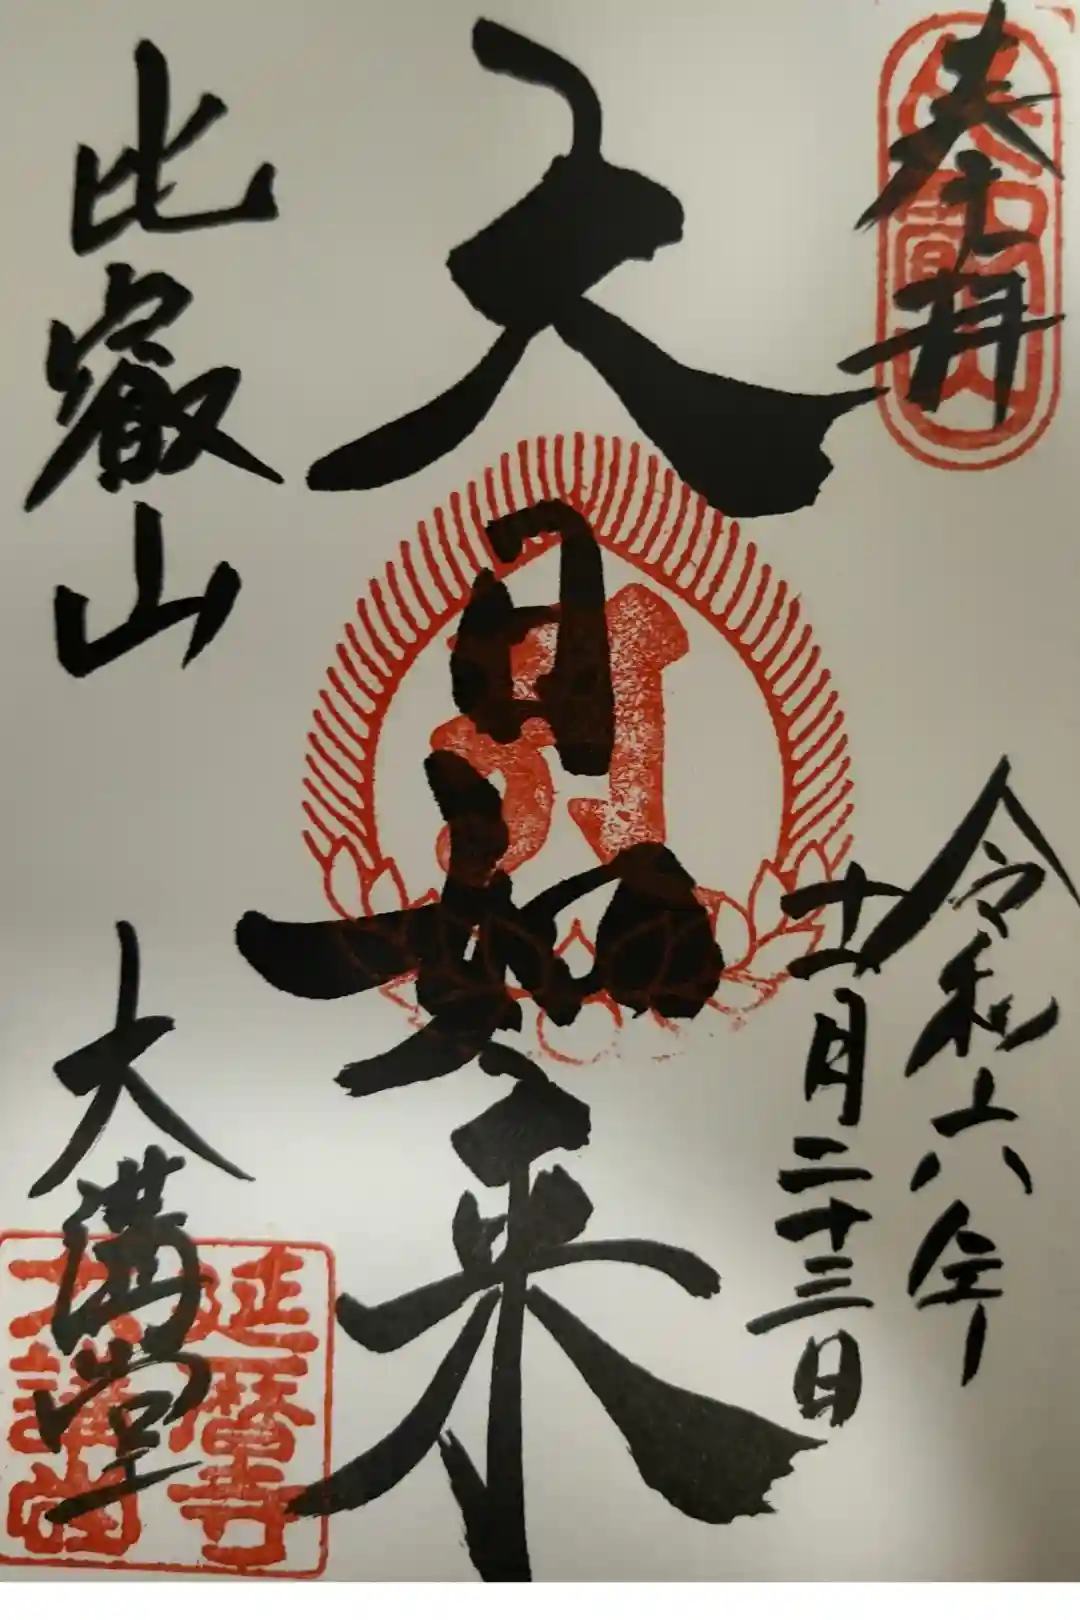 奉拝
令和六年
十一月二十三日
大日如来
比叡山
大講堂
延暦寺
大講堂